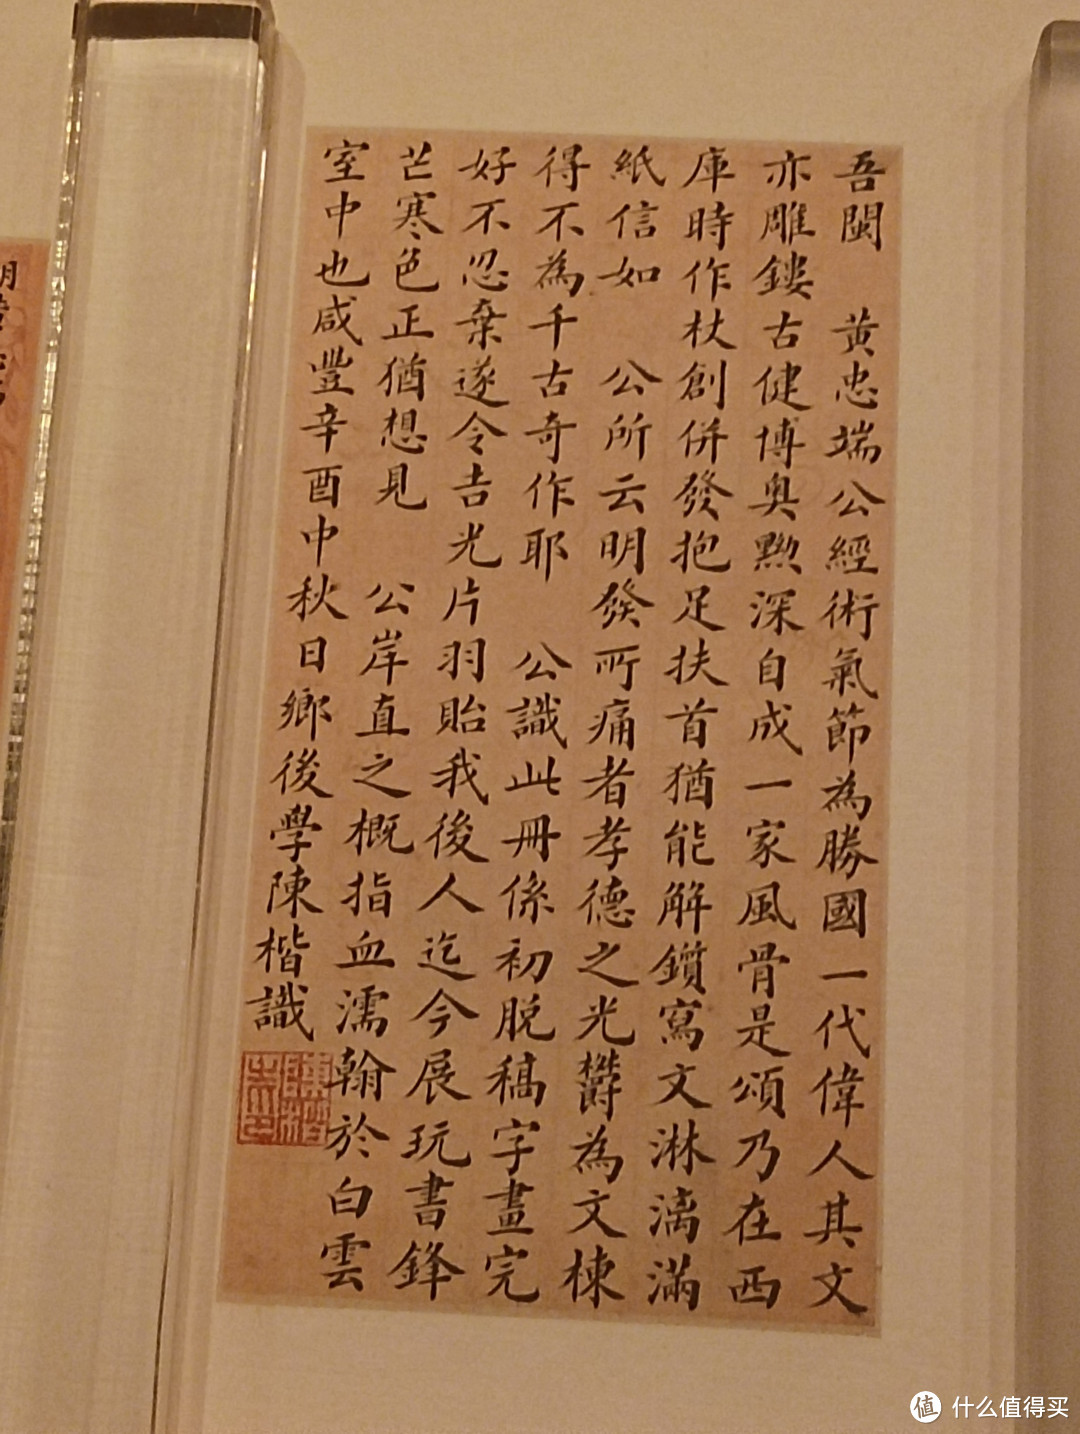 吾閩 黃忠端公經術氣節為勝國一代偉人其文
亦雕鏤古健博奧黝深自成一家風骨是頌乃在西
庫時作杖創併發抱足扶首猶能解鑕寫文淋漓滿
紙信如 公所云明發所痛者孝德之光欝為文棟
得不為千古奇作耶 公識此冊係初脫稿字畫完
好不忍棄遂令吉光片羽貽我後人迄今展玩書鋒
芒寒色正猶想見 公岸直之概指血濡翰於白雲
室中也咸豐辛酉中秋日鄉後學陳楷識
值 什么值得买